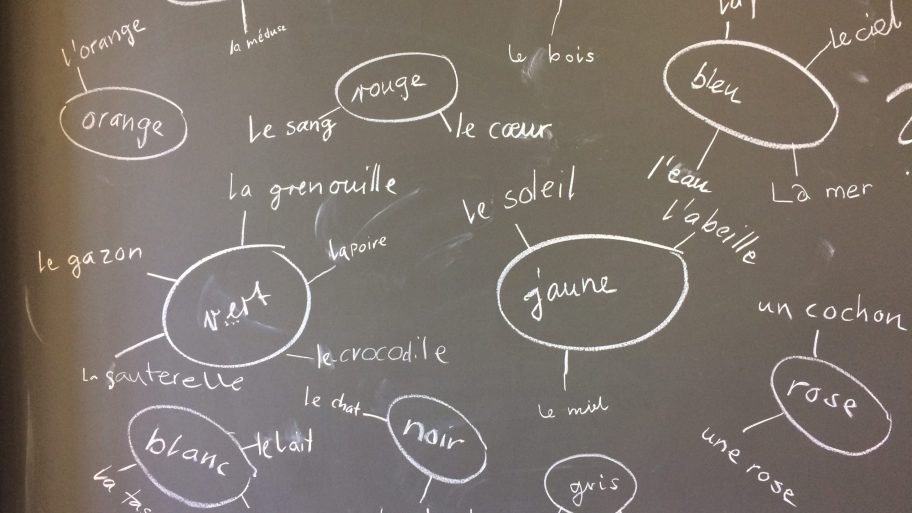 l'orange
la méduse
le bois
le ciel
orange
rouge
bleu
Le sang
le cœur
l'eau
La mer
la grenouille
le soleil
l'abeille
le gazon
la poire
vert
jaune
le crocodile
la sauterelle
un cochon
le chat
le miel
rose
blanc
le lait
noir
une rose
gris